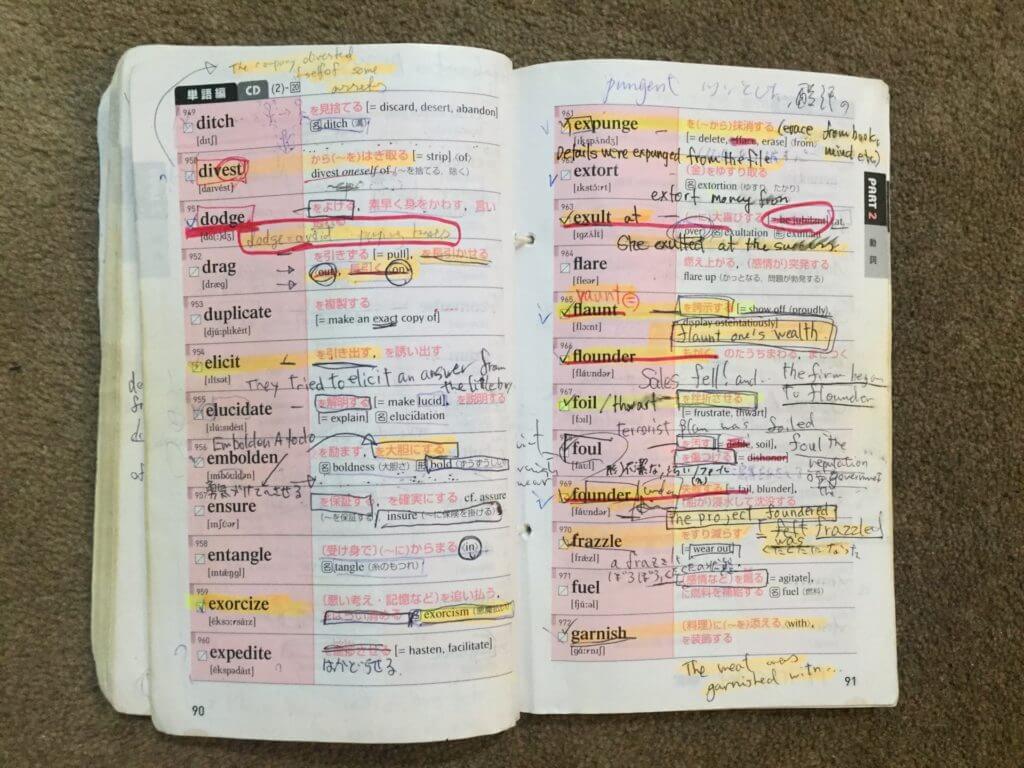 The company divested
itself of some
assets
単語編 CD (2)-20
949
ditch
[dɪtʃ]
を見捨てる [= discard, desert, abandon]
名 ditch (溝)
950
divest
[daɪvést]
から(〜を)はぎ取る [= strip] 〈of〉
divest oneself of (〜を捨てる，除く)
951
dodge
をよける，素早く身をかわす，言い
dodge = avoid
952
drag
[dræg]
を引きずる [= pull]，を長引かせる
〈out〉，長引く〈on〉
953
duplicate
[djúːplɪkèɪt]
を複製する
[= make an exact copy of]
954
elicit
[ɪlísət]
を引き出す，を誘い出す
They tried to elicit an answer from
the little boy
955
elucidate
[ɪlúːsɪdèɪt]
を解明する [= make lucid]，を説明する
[= explain] 名 elucidation
Embolden A to do
956
embolden
[ɪmbóʊldən]
を励ます，を大胆にする
名 boldness (大胆さ) 形 bold (ずうずうしい)
勇気づけて〜させる
957
ensure
[ɪnʃʊ́ər]
を保証する，を確実にする cf. assure
(〜を保証する) insure (〜に保険を掛ける)
958
entangle
[ɪntǽŋgl]
〔受け身で〕(〜に)からまる〈in〉
名 tangle (糸のもつれ)
959
exorcize
[éksɔːrsàɪz]
(悪い考え・記憶など)を追い払う，
名 exorcism
960
expedite
[ékspədàɪt]
[= hasten, facilitate]
はかどらせる
90
pungent
961
expunge
[ɪkspʌ́ndʒ]
を(〜から)抹消する (erase from books,
[= delete, efface, erase] 〈from〉 mind etc)
Details were expunged from the file
extort
[ɪkstɔ́ːrt]
(金)をゆすり取る
名 extortion (ゆすり，たかり)
extort money from
963
exult at
[ɪgzʌ́lt]
大喜びする [= be jubilant] 〈at,
over〉 名 exultation 形 exultant
She exulted at the success
964
flare
[fleər]
燃え上がる，(感情が)突発する
flare up (かっとなる，問題が勃発する)
vaunt =
965
flaunt
[flɔːnt]
を誇示する [= show off (proudly),
display ostentatiously]
flaunt one's wealth.
966
flounder
[fláʊndər]
もがく，のたうちまわる，まごつく
Sales fell! and... the firm began
to flounder
967
foil / thwart
[fɔɪl]
を挫折させる
[= frustrate, thwart]
terrorist plan was foiled
968
foul
[faʊl]
を汚す [= defile, soil],
を傷つける [= dishonor]
foul the
reputation
of the government
969
founder
[fáʊndər]
[= fail, blunder],
(船が)浸水して沈没する
The project foundered
970
frazzle
[frǽzl]
をすり減らす
[= wear out]
= felt frazzled
was
くたくたになった
a frazzle
571
fuel
[fjúːəl]
(感情など)を煽る [= agitate],
に燃料を補給する 名 fuel (燃料)
972
garnish
[gɑ́ːrnɪʃ]
(料理)に(〜を)添える〈with〉，
を装飾する
The meat was
garnished with...
91
PART 2
動詞